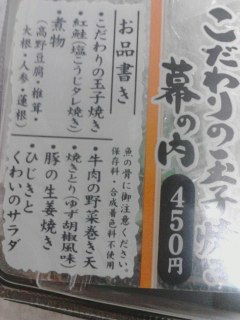 こだわりの玉子焼
幕の内
450円
お品書き
・こだわりの玉子焼き
・紅鮭(塩こうじタレ焼き)
・煮物
(高野豆腐・椎茸・
大根・人参・蓮根)
魚の骨に御注意ください。
保存料・合成着色料不使用
・牛肉の野菜巻き天
・焼きとり(ゆず胡椒風味)
・豚の生姜焼き
・ひじきと
くわいのサラダ